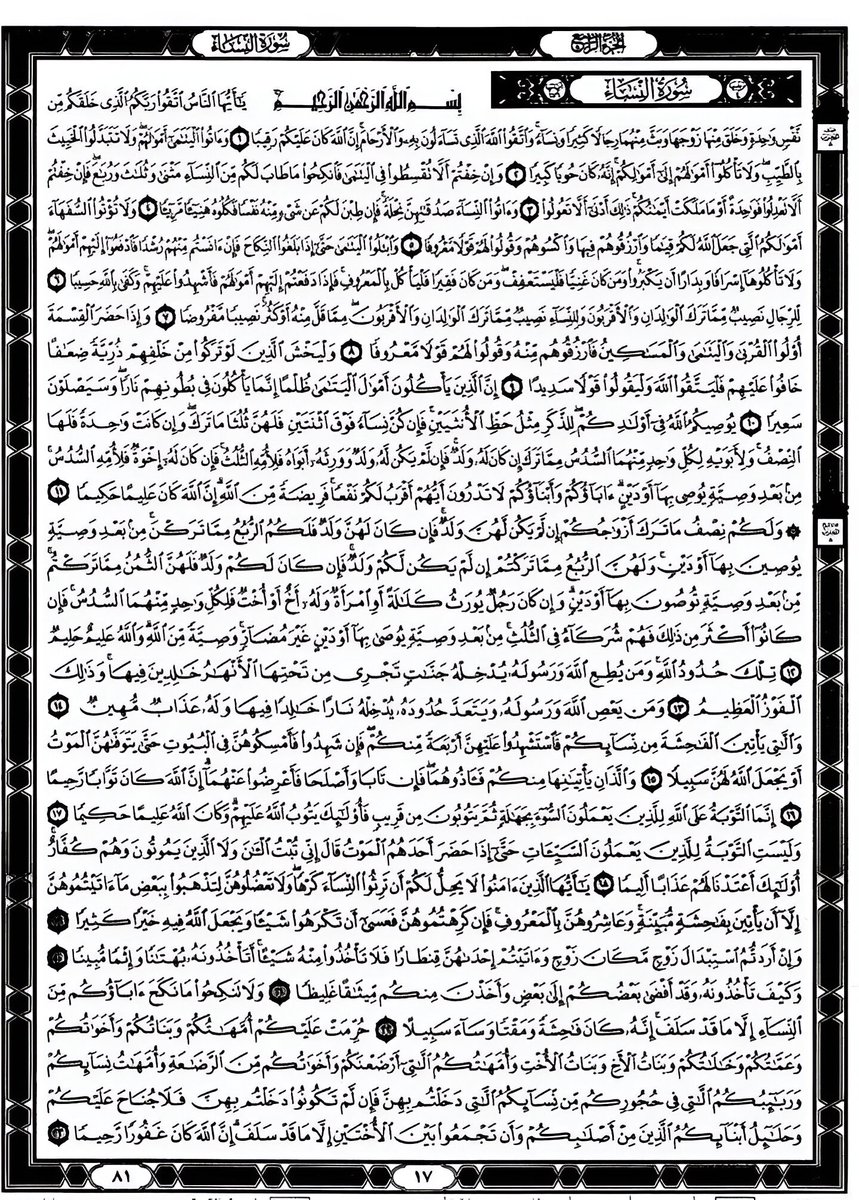 الجزء الرابع
سورة النساء
سورة النساء
بسم الله الرحمن الرحيم يٰأيها الناس اتقوا ربكم الذى خلقكم من
نفس وٰحدة وخلق منها زوجها وبث منهما رجالا كثيرا ونساء واتقوا الله الذى تساءلون به والأرحام إن الله كان عليكم رقيبا ١ وءاتوا اليتٰمىٰ أموٰلهم ولا تتبدلوا الخبيث
بالطيب ولا تأكلوا أموٰلهم إلىٰ أموٰلكم إنه كان حوبا كبيرا ٢ وإن خفتم ألا تقسطوا فى اليتٰمىٰ فانكحوا ما طاب لكم من النساء مثنىٰ وثلٰث وربٰع فإن خفتم
ألا تعدلوا فوٰحدة أو ما ملكت أيمٰنكم ذٰلك أدنىٰ ألا تعولوا ٣ وءاتوا النساء صدقٰتهن نحلة فإن طبن لكم عن شىء منه نفسا فكلوه هنيئا مريئا ٤ ولا تؤتوا السفهاء
أموٰلكم التى جعل الله لكم قيٰما وارزقوهم فيها واكسوهم وقولوا لهم قولا معروفا ٥ وابتلوا اليتٰمىٰ حتىٰ إذا بلغوا النكاح فإن ءانستم منهم رشدا فادفعوا إليهم أموٰلهم
ولا تأكلوها إسرافا وبدارا أن يكبروا ومن كان غنيا فليستعفف ومن كان فقيرا فليأكل بالمعروف فإذا دفعتم إليهم أموٰلهم فأشهدوا عليهم وكفىٰ بالله حسيبا ٦
للرجال نصيب مما ترك الوٰلدان والأقربون وللنساء نصيب مما ترك الوٰلدان والأقربون مما قل منه أو كثر نصيبا مفروضا ٧ وإذا حضر القسمة
أولوا القربىٰ واليتٰمىٰ والمسٰكين فارزقوهم منه وقولوا لهم قولا معروفا ٨ وليخش الذين لو تركوا من خلفهم ذرية ضعٰفا
خافوا عليهم فليتقوا الله وليقولوا قولا سديدا ٩ إن الذين يأكلون أموٰل اليتٰمىٰ ظلما إنما يأكلون فى بطونهم نارا وسيصلون
سعيرا ١٠ يوصيكم الله فى أولٰدكم للذكر مثل حظ الأنثيين فإن كن نساء فوق اثنتين فلهن ثلثا ما ترك وإن كانت وٰحدة فلها
النصف ولأبويه لكل وٰحد منهما السدس مما ترك إن كان له ولد فإن لم يكن له ولد وورثه أبواه فلأمه الثلث فإن كان له إخوة فلأمه السدس
من بعد وصية يوصى بها أو دين ءاباؤكم وأبناؤكم لا تدرون أيهم أقرب لكم نفعا فريضة من الله إن الله كان عليما حكيما ١١
۞ ولكم نصف ما ترك أزوٰجكم إن لم يكن لهن ولد فإن كان لهن ولد فلكم الربع مما تركن من بعد وصية
يوصين بها أو دين ولهن الربع مما تركتم إن لم يكن لكم ولد فإن كان لكم ولد فلهن الثمن مما تركتم
من بعد وصية توصون بها أو دين وإن كان رجل يورث كلٰلة أو امرأة وله أخ أو أخت فلكل وٰحد منهما السدس فإن
كانوا أكثر من ذٰلك فهم شركاء فى الثلث من بعد وصية يوصىٰ بها أو دين غير مضار وصية من الله والله عليم حليم
١٢ تلك حدود الله ومن يطع الله ورسوله يدخله جنٰت تجرى من تحتها الأنهٰر خٰلدين فيها وذٰلك
الفوز العظيم ١٣ ومن يعص الله ورسوله ويتعد حدوده يدخله نارا خٰلدا فيها وله عذاب مهين ١٤
والٰتى يأتين الفٰحشة من نسائكم فاستشهدوا عليهن أربعة منكم فإن شهدوا فأمسكوهن فى البيوت حتىٰ يتوفىٰهن الموت
أو يجعل الله لهن سبيلا ١٥ والذان يأتيٰنها منكم فـٔاذوهما فإن تابا وأصلحا فأعرضوا عنهما إن الله كان توابا رحيما
١٦ إنما التوبة على الله للذين يعملون السوء بجهٰلة ثم يتوبون من قريب فأولٰئك يتوب الله عليهم وكان الله عليما حكيما ١٧
وليست التوبة للذين يعملون السيـٔات حتىٰ إذا حضر أحدهم الموت قال إنى تبت الـٰٔن ولا الذين يموتون وهم كفار
أولٰئك أعتدنا لهم عذابا أليما ١٨ يٰأيها الذين ءامنوا لا يحل لكم أن ترثوا النساء كرها ولا تعضلوهن لتذهبوا ببعض ما ءاتيتموهن
إلا أن يأتين بفٰحشة مبينة وعاشروهن بالمعروف فإن كرهتموهن فعسىٰ أن تكرهوا شيـٔا ويجعل الله فيه خيرا كثيرا ١٩
وإن أردتم استبدال زوج مكان زوج وءاتيتم إحدىٰهن قنطارا فلا تأخذوا منه شيـٔا أتأخذونه بهتٰنا وإثما مبينا ٢٠
وكيف تأخذونه وقد أفضىٰ بعضكم إلىٰ بعض وأخذن منكم ميثٰقا غليظا ٢١ ولا تنكحوا ما نكح ءاباؤكم من
النساء إلا ما قد سلف إنه كان فٰحشة ومقتا وساء سبيلا ٢٢ حرمت عليكم أمهٰتكم وبناتكم وأخوٰتكم
وعمٰتكم وخٰلٰتكم وبنات الأخ وبنات الأخت وأمهٰتكم الٰتى أرضعنكم وأخوٰتكم من الرضٰعة وأمهٰت نسائكم
وربٰئبكم الٰتى فى حجوركم من نسائكم الٰتى دخلتم بهن فإن لم تكونوا دخلتم بهن فلا جناح عليكم
وحلٰئل أبنائكم الذين من أصلٰبكم وأن تجمعوا بين الأختين إلا ما قد سلف إن الله كان غفورا رحيما ٢٣
١٧
٨١